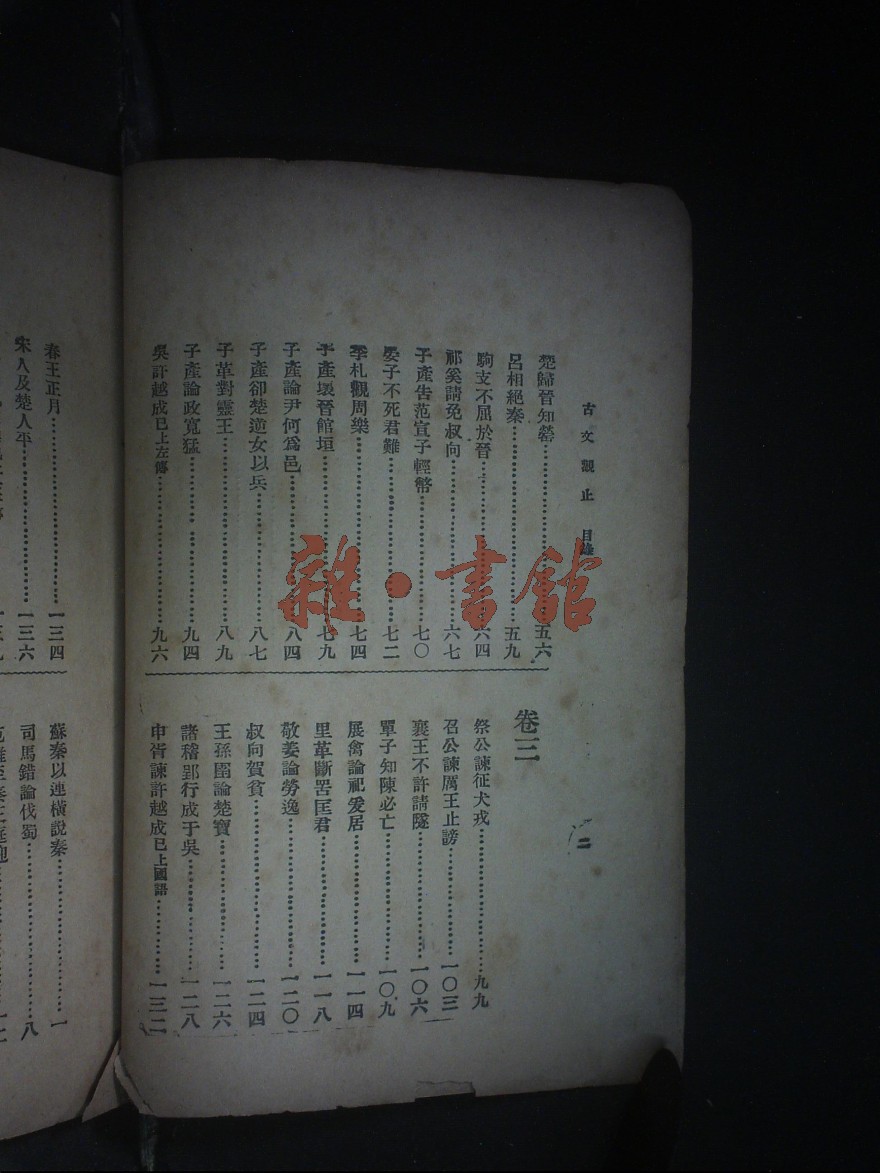 古文觀止 目錄
二
楚歸晉知罃……五六
呂相絕秦……五九
駒支不屈於晉……六四
祁奚請免叔向……六七
子產告范宣子輕幣……七〇
晏子不死君難……七二
季札觀周樂……七四
子產壞晉館垣……七九
子產論尹何爲邑……八四
子產卻楚逆女以兵……八七
子革對靈王……八九
子產論政寬猛……九四
吳許越成已上左傳……九六
卷三
祭公諫征犬戎……九九
召公諫厲王止謗……一〇三
襄王不許請隧……一〇六
單子知陳必亡……一〇九
展禽論祀爰居……一一四
里革斷罟匡君……一一八
敬姜論勞逸……一二〇
叔向賀貧……一二四
王孫圉論楚寶……一二六
諸稽郢行成于吳……一二八
申胥諫許越成已上國語……一三二
春王正月……一三四
宋人及楚人平……一三六
蘇秦以連橫說秦……一
司馬錯論伐蜀……八
雜·書館